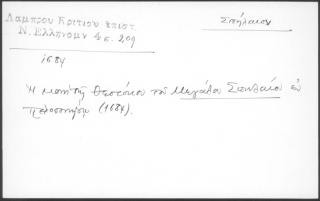 Λάμπρου Κριτιου επιστ.
Σπήλαιον
Ν. Ελληνομν 4 σ. 209
1684
Ἡ μονὴ τῆς Θεοτόκου τοῦ Μεγάλου Σπηλαίου ἐν
Πελοποννήσῳ (1684).